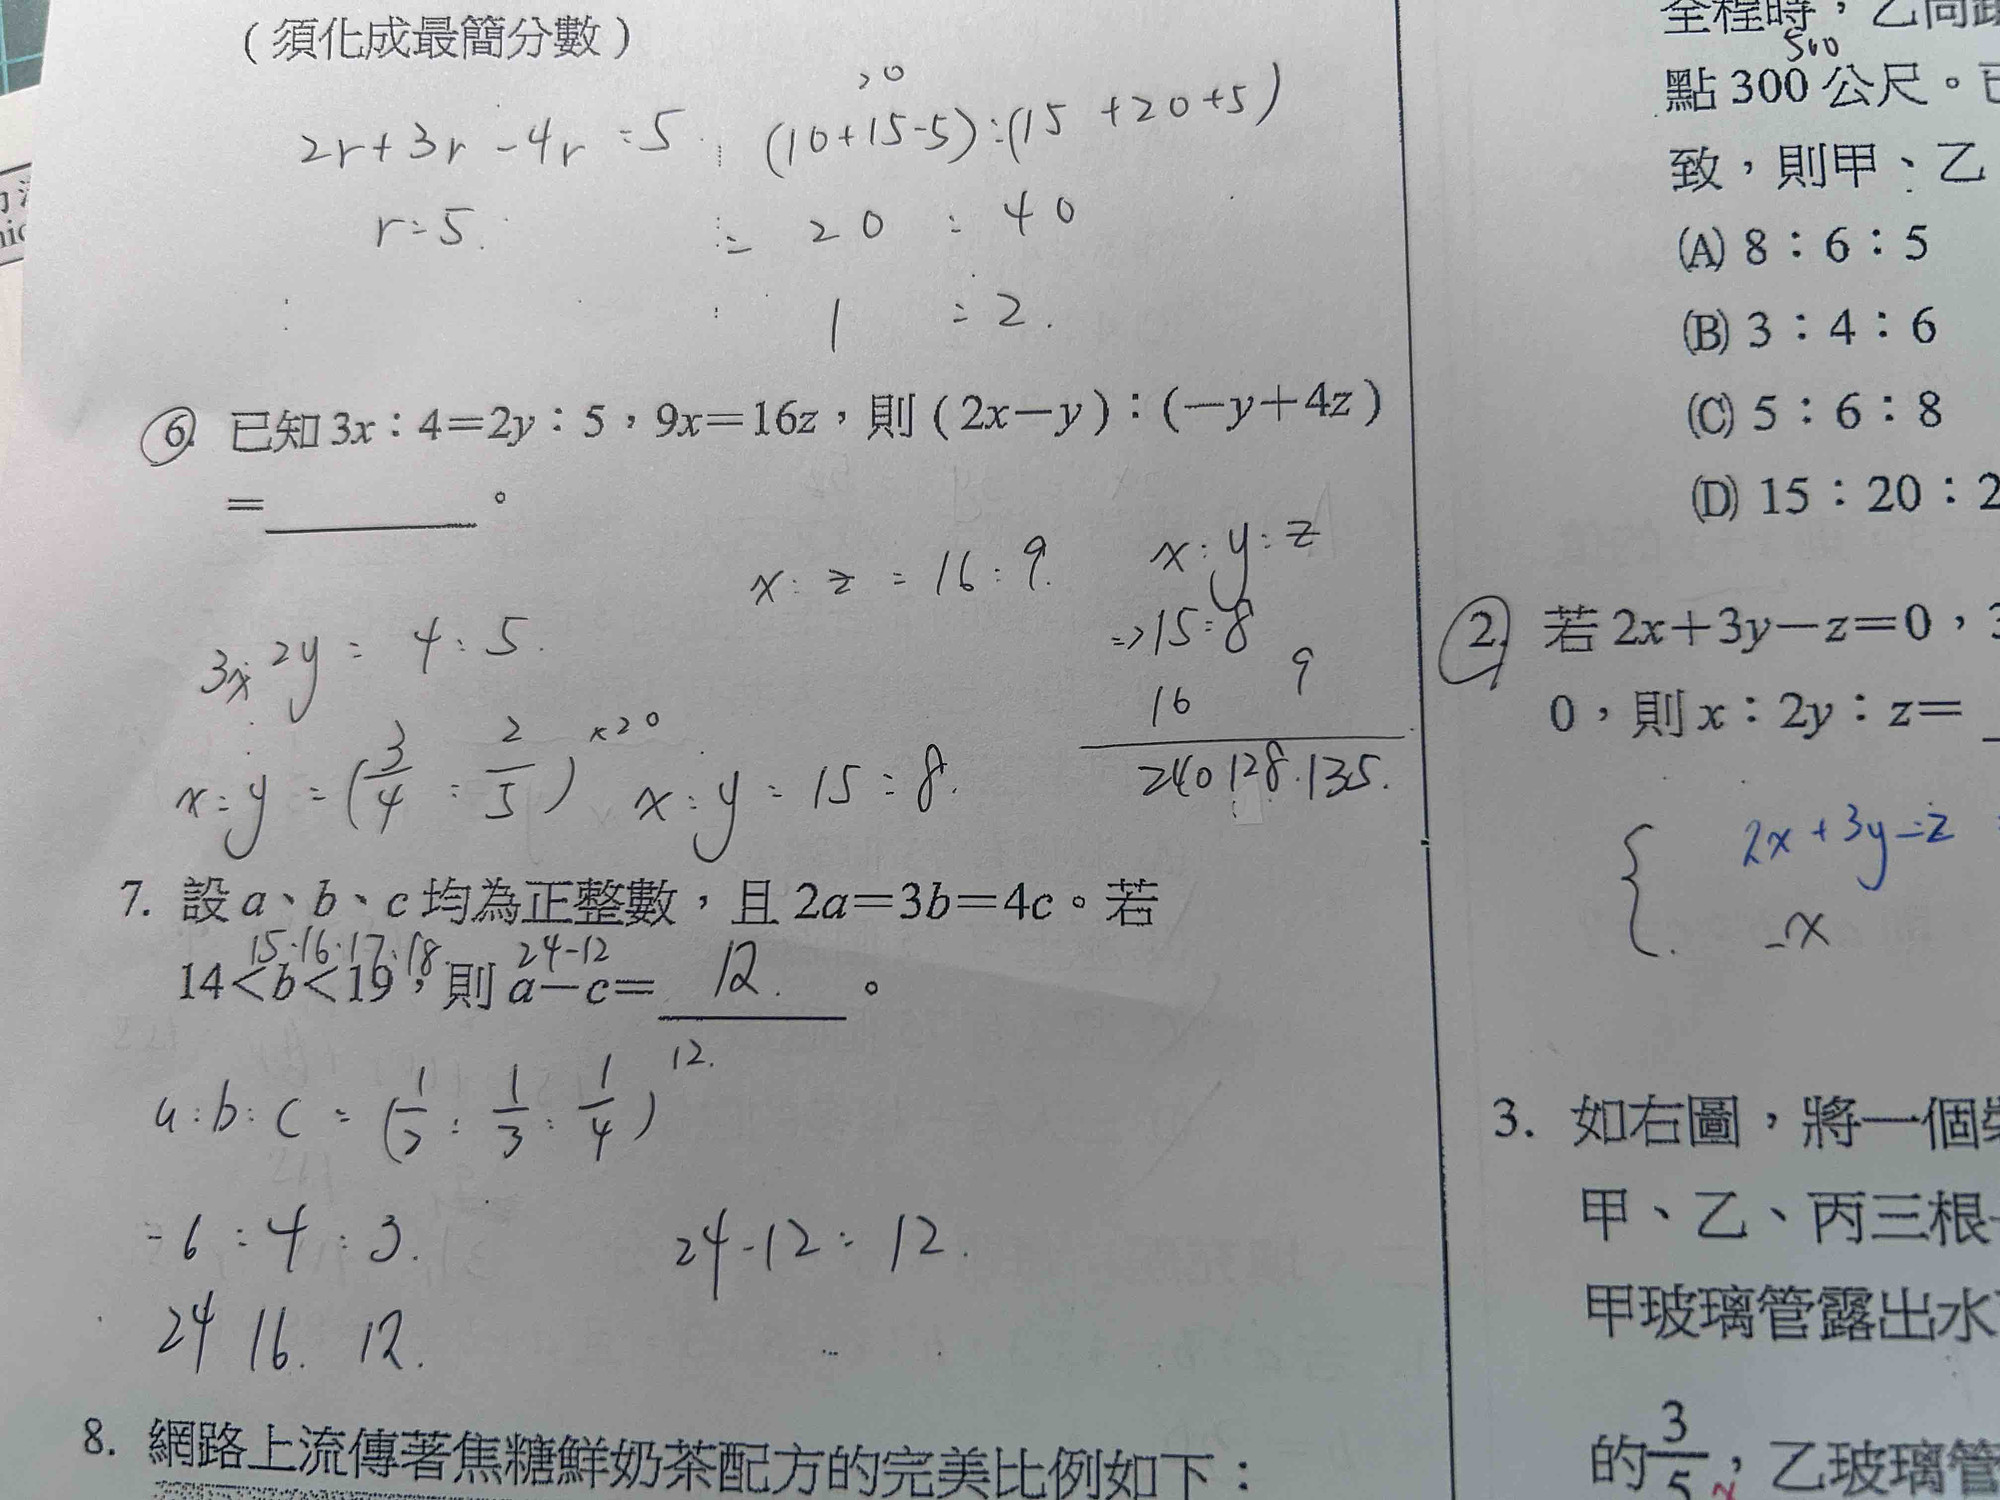 (須化成最簡分數)
20
2r+3r-4r=5 (10+15-5):(15+20+5)
r=5. = 20 : 40
1 : 2.
6. 已知3x:4=2y:5,9x=16z,則(2x-y):(-y+4z)
=________。
x:z = 16:9. x:y:z
3x:2y = 4:5. ⇒15:8
16 9
x:y = (3/4 : 2/5)×20 x:y = 15:8. 240 128.135.
7. 設a、b、c均為正整數,且2a=3b=4c。若
15.16.17.18. 24-12
14<b<19,則a-c= 12. 。
a:b:c = (1/2 : 1/3 : 1/4) 12.
=6:4:3. 24-12=12.
24 16. 12.
8. 網路上流傳著焦糖鮮奶茶配方的完美比例如下:
全程時,乙尚
500
點300公尺。
致,則甲、乙
(A) 8:6:5
(B) 3:4:6
(C) 5:6:8
(D) 15:20:2
2. 若2x+3y-z=0,
0,則x:2y:z=
{ 2x+3y=z
-x
3. 如右圖,將一個
甲、乙、丙三根
甲玻璃管露出水
的3/5,乙玻璃管